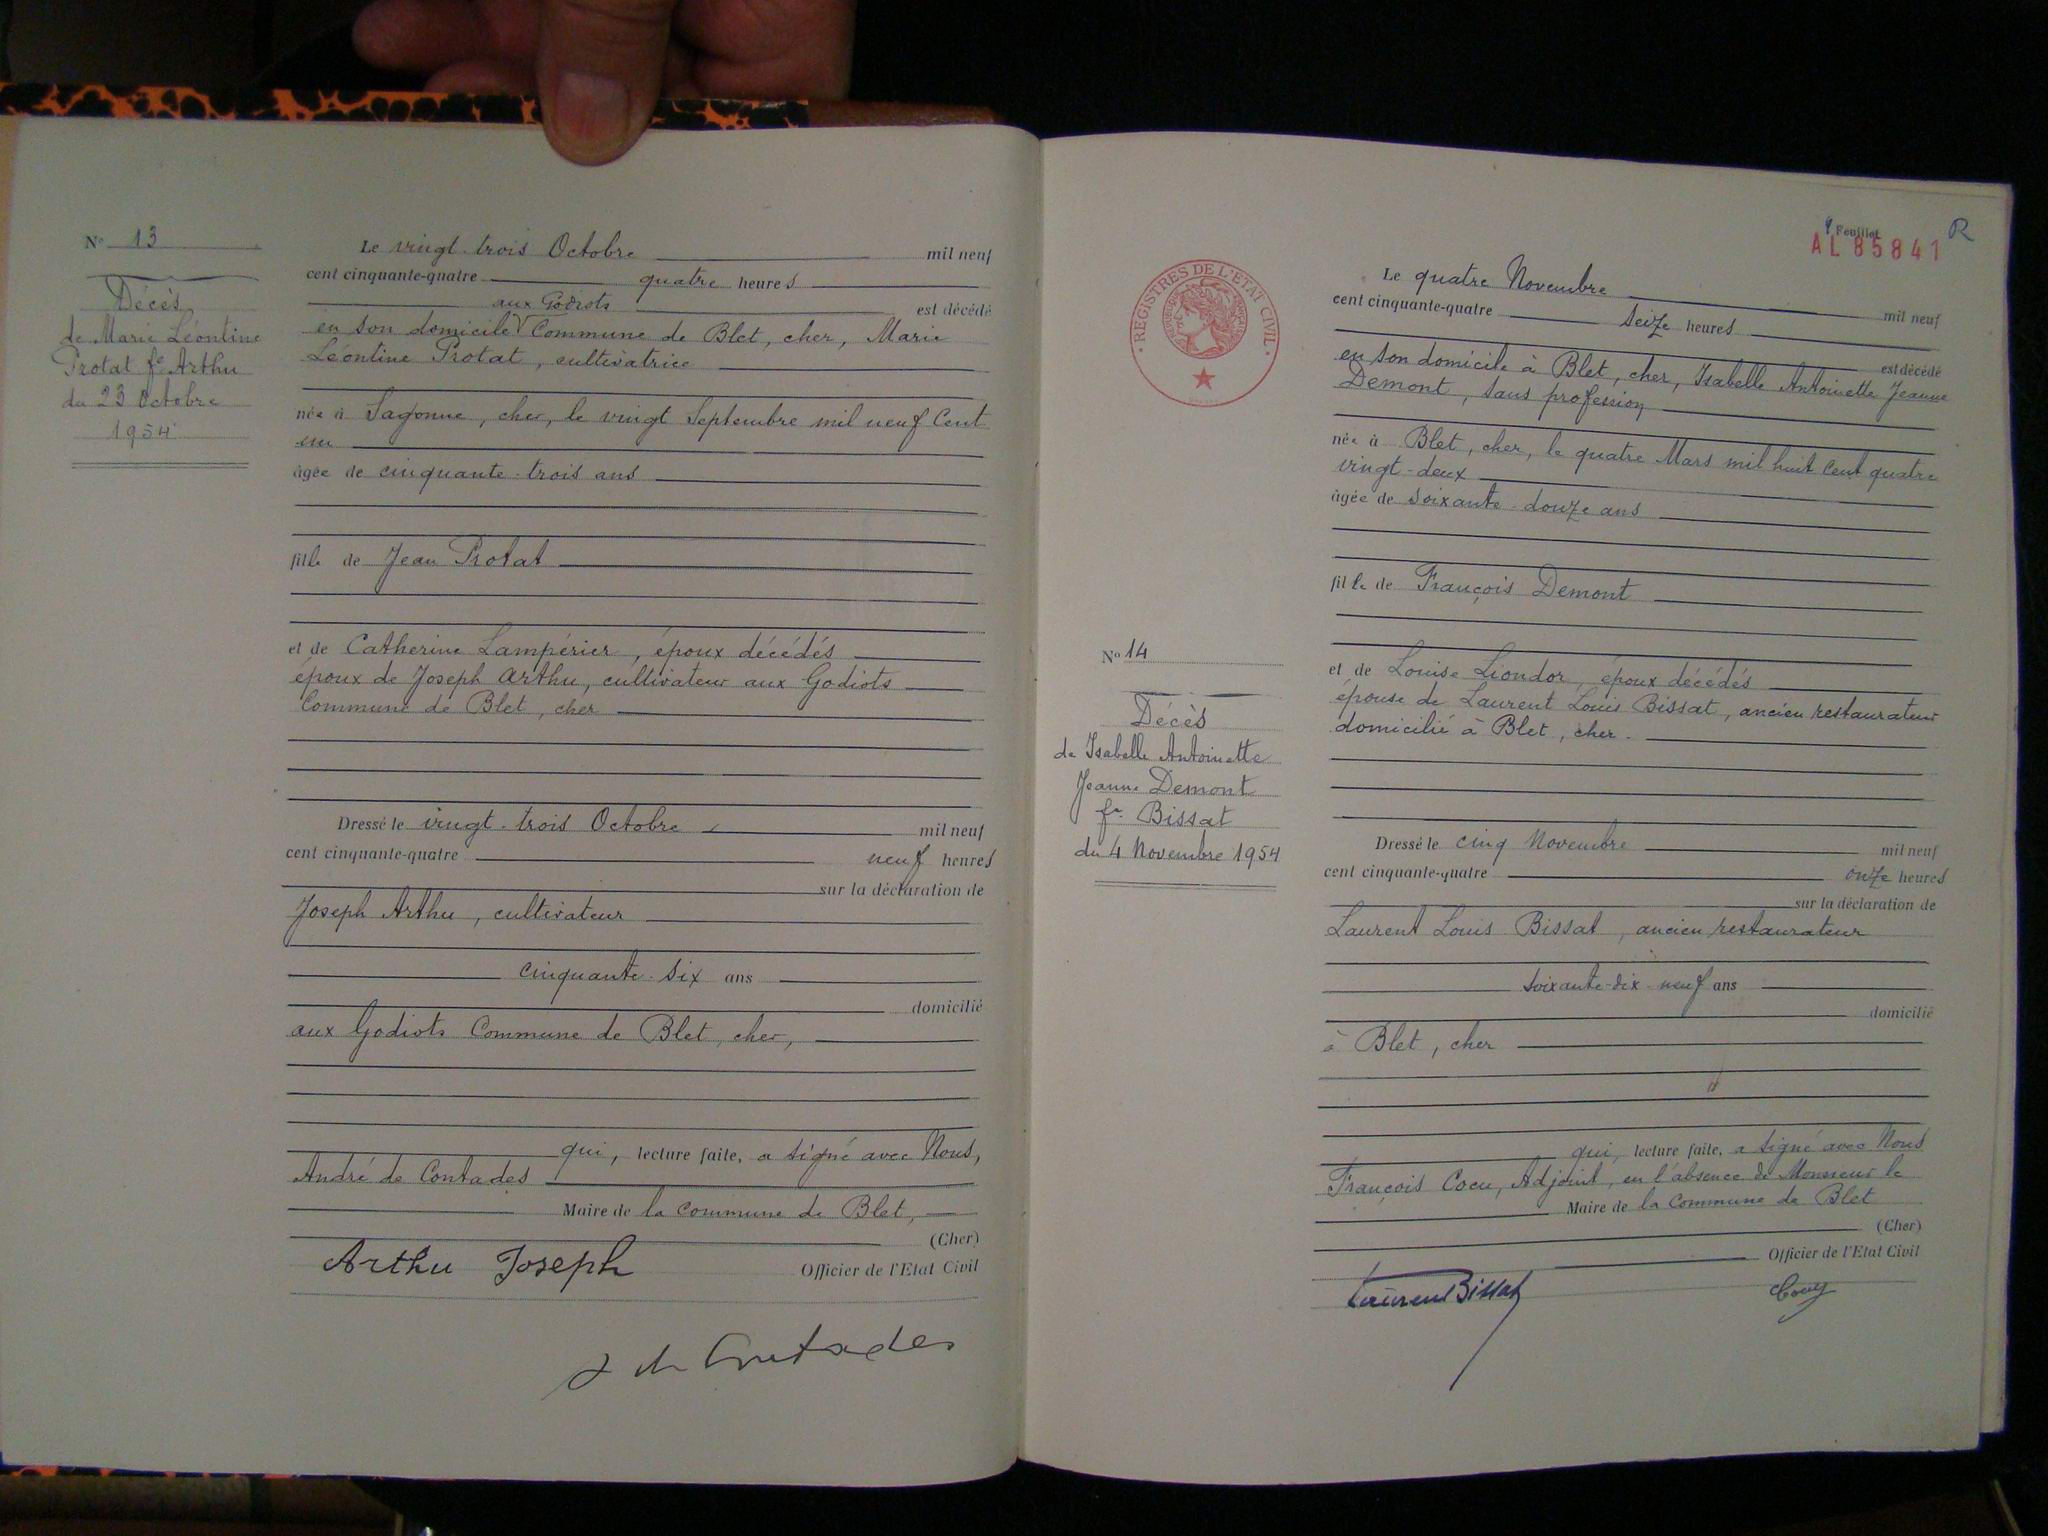 Nº 13
Décès
de Marie Léontine
Protat fe Arthu
du 23 Octobre
1954
Le vingt-trois Octobre mil neuf
cent cinquante-quatre quatre heures
aux Godiots est décédé
en son domicile Commune de Blet, cher, Marie
Léontine Protat, cultivatrice
née à Sagonne, cher, le vingt Septembre mil neuf Cent
un
âgée de cinquante-trois ans
fille de Jean Protat
et de Catherine Lampérier, époux décédés
époux de Joseph Arthu, cultivateur aux Godiots
Commune de Blet, cher
Dressé le vingt-trois Octobre mil neuf
cent cinquante-quatre neuf heures
sur la déclaration de
Joseph Arthu, cultivateur
cinquante-six ans
domicilié
aux Godiots Commune de Blet, cher,
qui, lecture faite, a signé avec Nous,
André de Contades
Maire de la Commune de Blet,
(Cher)
Arthu Joseph Officier de l'Etat Civil
de Contades
REGISTRES DE L'ETAT CIVIL
9 Feuillet R
AL 85841
Nº 14
Décès
de Isabelle Antoinette
Jeanne Demont
fe Bissat
du 4 Novembre 1954
Le quatre Novembre
mil neuf
cent cinquante-quatre seize heures
est décédé
en son domicile à Blet, cher, Isabelle Antoinette Jeanne
Demont, sans profession
née à Blet, cher, le quatre Mars mil huit Cent quatre
vingt-deux
âgée de soixante-douze ans
fille de François Demont
et de Louise Liondor, époux décédés
épouse de Laurent Louis Bissat, ancien restaurateur
domicilié à Blet, cher.
Dressé le cinq Novembre mil neuf
cent cinquante-quatre onze heures
sur la déclaration de
Laurent Louis Bissat, ancien restaurateur
soixante-dix-neuf ans
domicilié
à Blet, cher
qui, lecture faite, a signé avec Nous
François Cocu, Adjoint, en l'absence de Monsieur le
Maire de la Commune de Blet
(Cher)
Officier de l'Etat Civil
Laurent Bissat